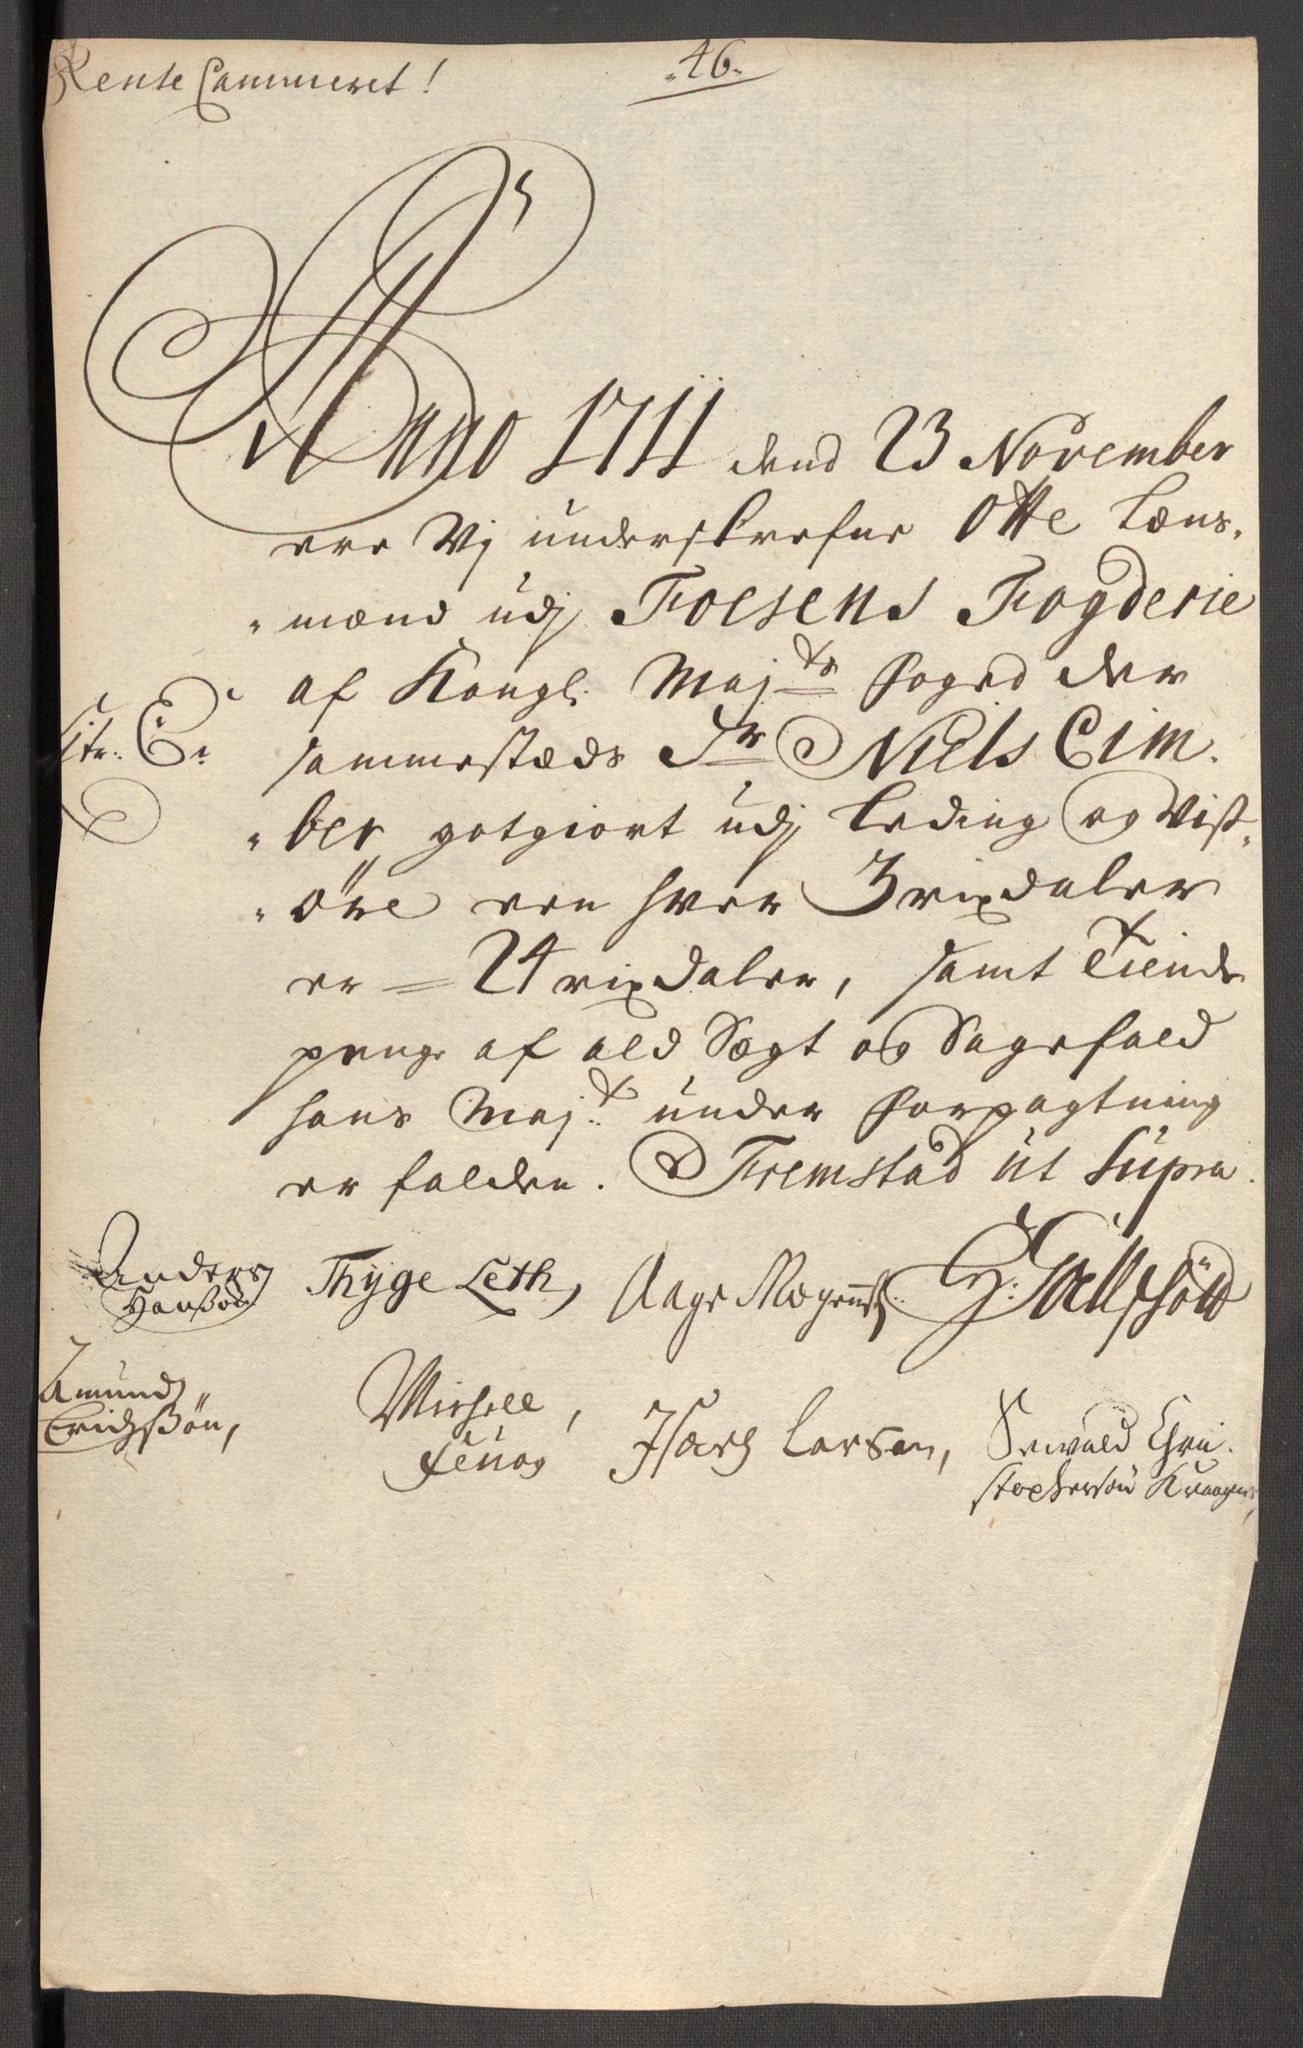 Rente Cammeret!
46.
Anno 1711 dend 23 November
ere Vj underskrefne Otte Læns-
mænd udj Foesens Fogderie
af Kongl: Maj:ts foged der
Litr: E:
sammestæds Sr Niels Cim-
ber godgiort udj Leding og Vist-
öre een hver 3 rixdaler
er = 24 rixdaler, samt Tiende
penge af ald Sigt og Sagefald
hans Maj:t under forpagtning
er falden. Fremstad ut Supra.
Anders
Hanßøn
Thyge Leth,
Aage Mogenß:
Amund
Erichßön,
Michell,
Isach Larsen,
Sewald Chri-
stophersön